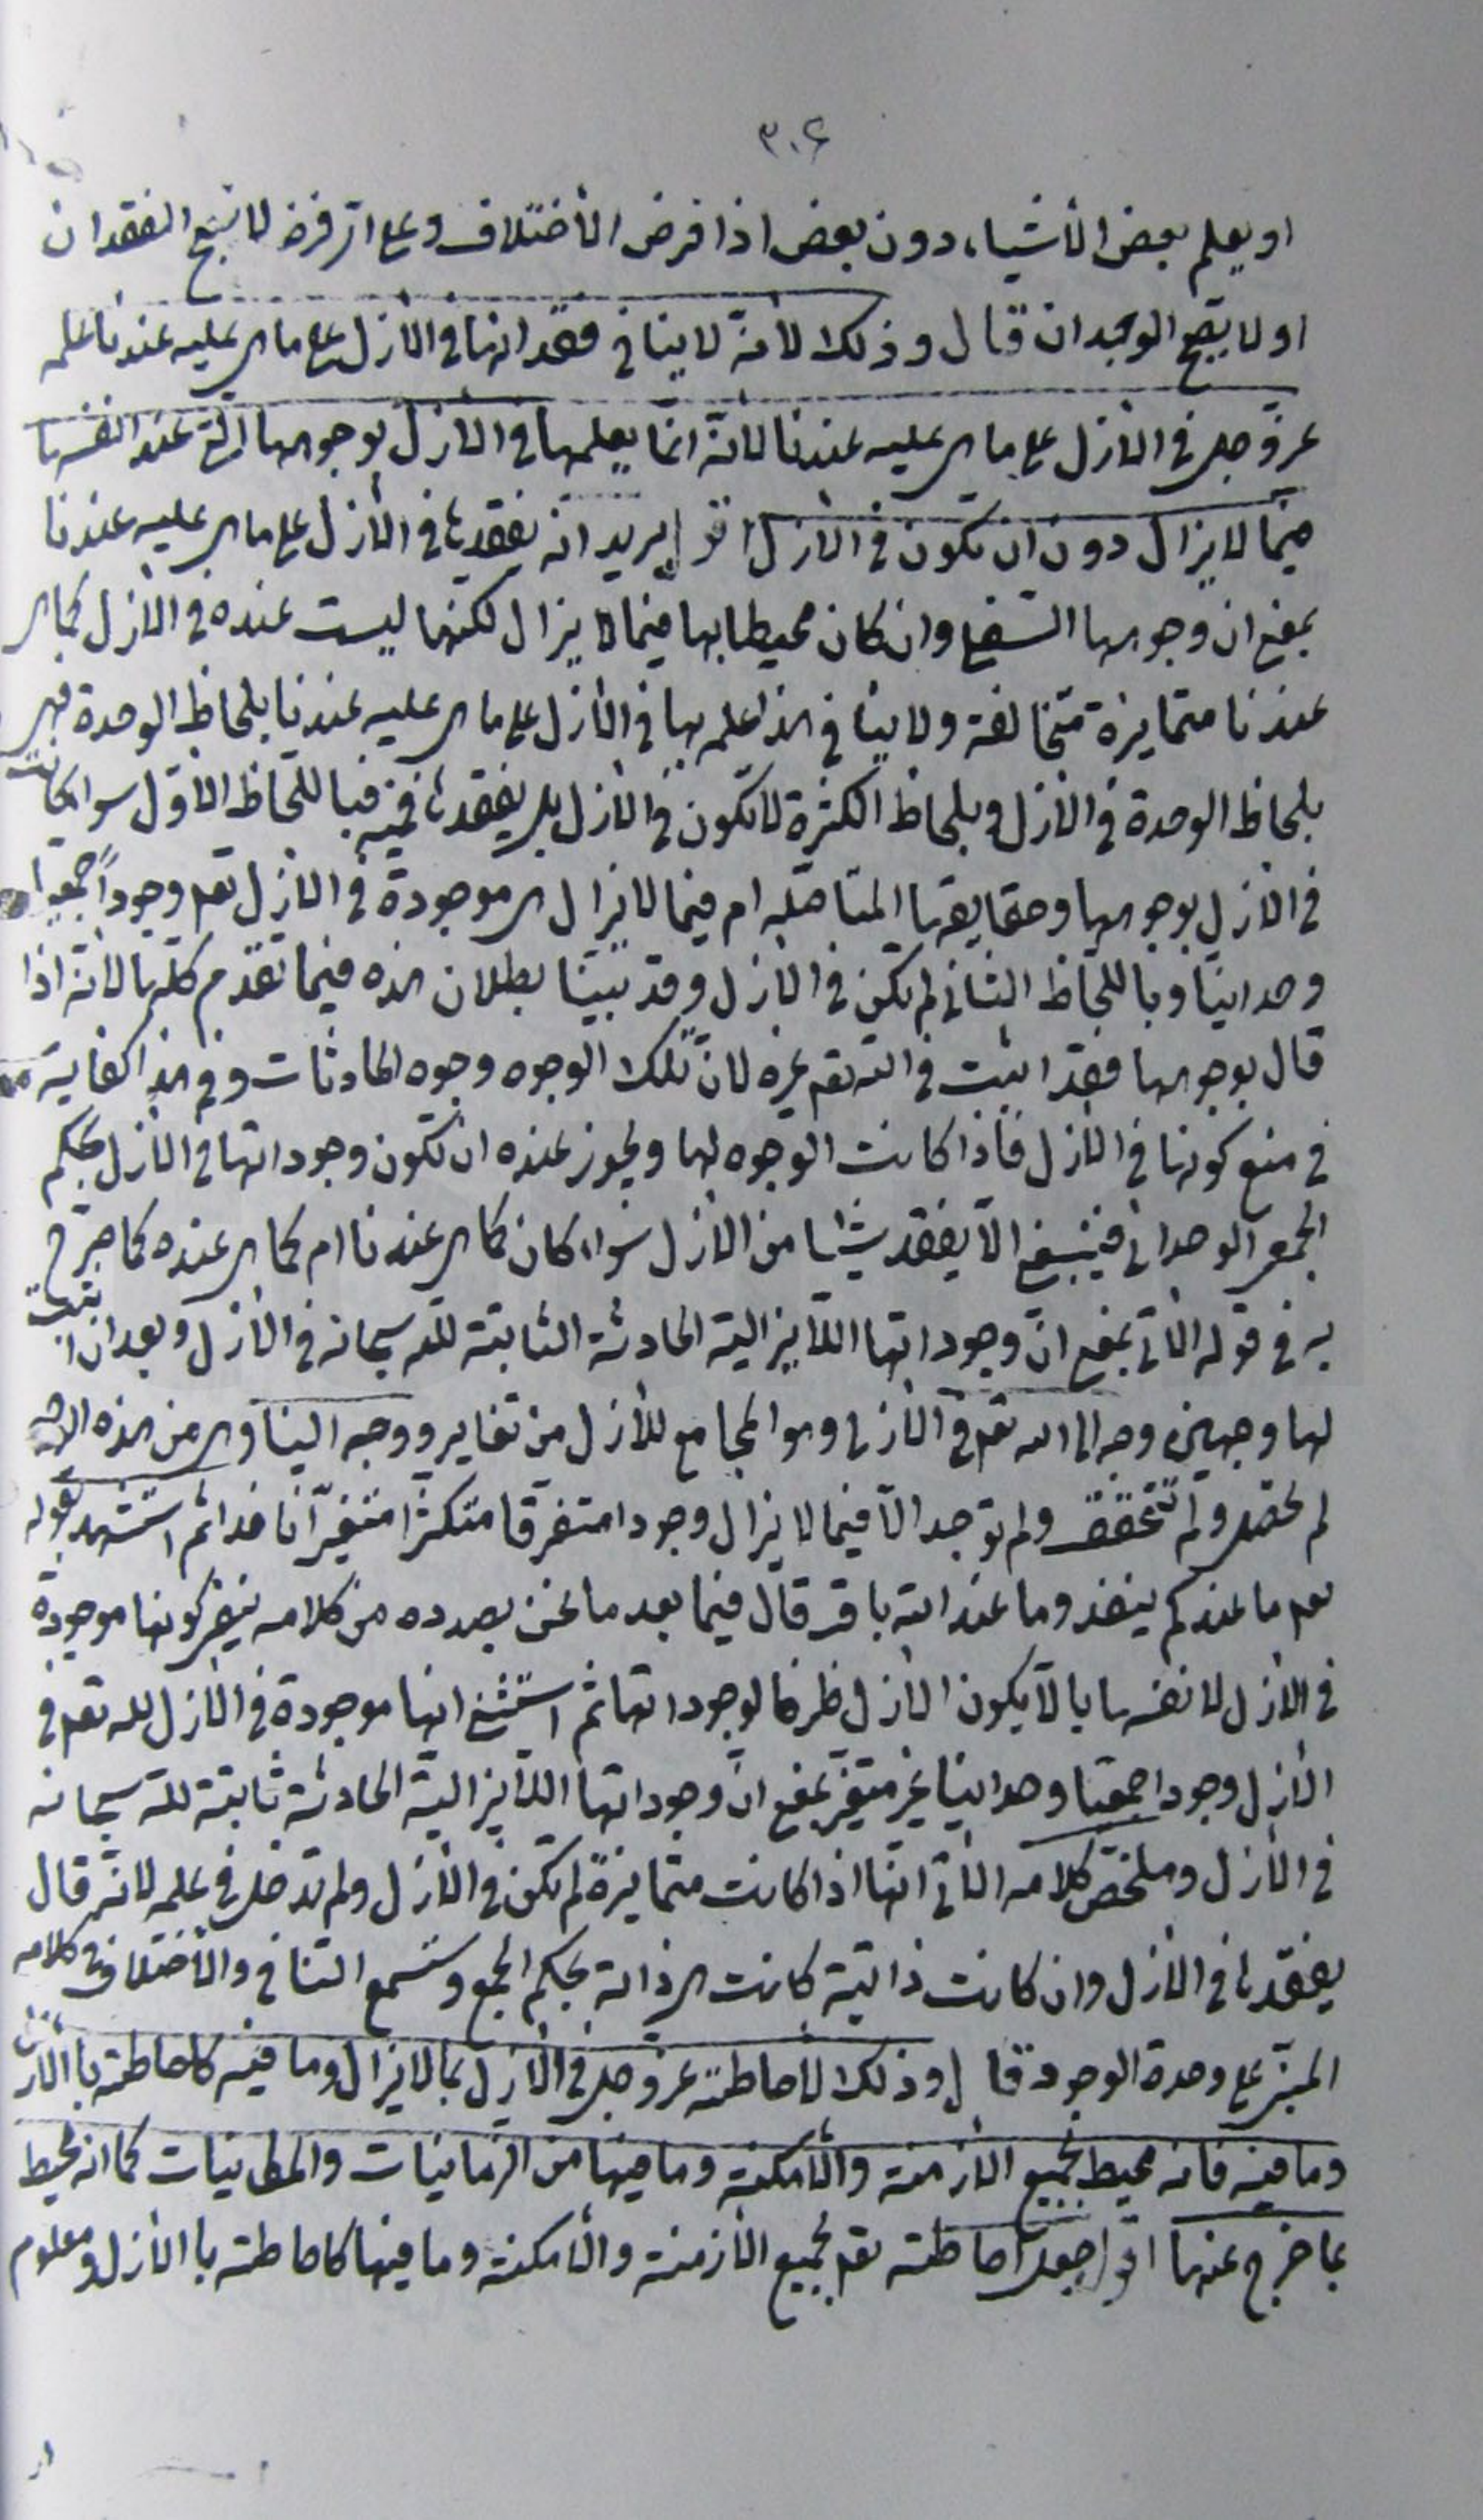 ٣٠٤
او يعلم بعض الأشياء دون بعض اذا فرض الأختلاف وعلى اي فرض لا يصح الفقدان
او لا يصح الوجدان قال وذلك لأنه لا ينافي فقدانها في الأزل على ما هي عليه عندنا علمه
عز وجل في الأزل على ما هي عليه عندنا لأنه انما يعلمها في الأزل بوجوهها التي عند انفسها
فيما لا يزال دون ان تكون في الأزل اقول يريد انه يفقدها في الأزل على ما هي عليه عندنا
بمعنى ان وجوهها السفلى وان كان محيطا بها فيما لا يزال لكنها ليست عنده في الأزل كما هي
عندنا متمايزة متخالفة ولا ينافي هذا علمه بها في الأزل على ما هي عليه عندنا بلحاظ الوحدة فهي
بلحاظ الوحدة في الأزل وبلحاظ الكثرة لا تكون في الأزل بل يفقدها فيه فباللحاظ الأول سواء كانت
في الأزل بوجوهها وحقايقها المتأصلة ام فيما لا يزال هي موجودة في الأزل تعه وجوداً جمعياً
وحدانيا وباللحاظ الثاني لم تكن في الأزل وقد بينا بطلان هذه فيما تقدم كلها لأنه اذا
قال بوجوهها فقد اثبت في الله تعه غيره لأن تلك الوجوه وجوه الحادثات وفي هذا كفاية
في منع كونها في الأزل فاذا كانت الوجوه لها ويجوز عنده ان تكون وجوداتها في الأزل بحكم
الجمع الوحداني فينبغي الا يفقد شيئا من الأزل سواء كان كما هي عندنا ام كما هي عنده كما صرح
به في قوله الآتي بمعنى ان وجوداتها اللايزالية الحادثة الثابتة لله سبحانه في الأزل وبعد ان اثبت
لها وجهين وجه الى الله تعه في الأزل وهو الجامع للأزل من تغاير ووجه الينا وهي من هذه
لم تحصل ولم تتحقق ولم توجد الا فيما لا يزال وجودا متفرقا متكثرا متغيرا نافدا ثم استشهد بقوله
تعه ما عندكم ينفد وما عند الله باق قال فيما بعد ما نحن بصدده من كلامه ينفي كونها موجودة
في الأزل لانفسها بالا يكون الأزل ظرفا لوجوداتها ثم استثنى انها موجودة في الأزل لله تعه في
الأزل وجودا جمعيا وحدانيا غير متغير بمعنى ان وجوداتها اللايزالية الحادثة ثابتة لله سبحانه
في الأزل وملخص كلامه الآتي انها اذا كانت متمايزة لم تكن في الأزل ولم تدخل في علمه لانه قال
يفقدها في الأزل وان كانت ذاتية كانت هي ذاته بحكم الجمع وستسمع التنافي والأختلاف في كلامه
المبني على وحدة الوجود قال وذلك لأحاطته عز وجل في الأزل بما لا يزال وما فيه كاحاطته بالأزل
وما فيه فانه محيط بجميع الأزمنة والأمكنة وما فيها من الزمانيات والمكانيات كما انه محيط
بما خرج عنها اقول جعل احاطته تعه بجميع الأزمنة والأمكنة وما فيها كاحاطته بالأزل ومعلوم